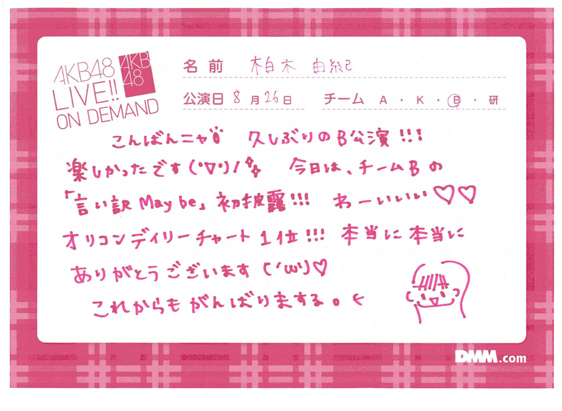 AKB48
LIVE!!
ON DEMAND
AKB
48
名前 柏木 由紀
公演日 8月26日 チーム A・K・B・研
こんばんニャ 久しぶりのB公演!!!
楽しかったです(°∇°)/ 今日は、チームBの
「言い訳Maybe」初披露!!! わーいいい♡♡
オリコンデイリーチャート1位!!! 本当に本当に
ありがとうございます('ω')♡
これからもがんばりまする。く
DMM.com